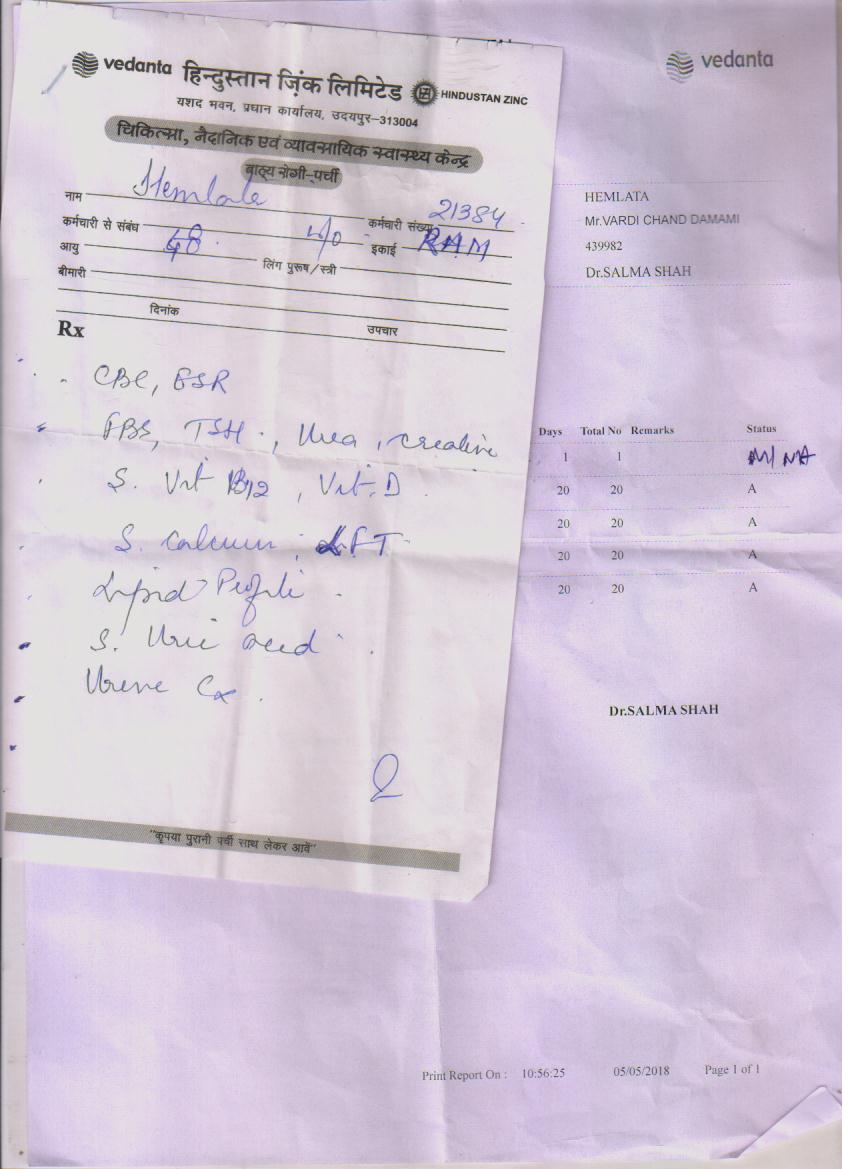 vedanta हिन्दुस्तान ज़िंक लिमिटेड HINDUSTAN ZINC
यशद भवन, प्रधान कार्यालय, उदयपुर-313004
चिकित्सा, नैदानिक एवं व्यावसायिक स्वास्थ्य केन्द्र
बाह्य रोगी-पर्ची
नाम Hemlata
कर्मचारी से संबंध W/o कर्मचारी संख्या 21384
आयु 48 लिंग पुरूष/स्त्री इकाई RAM
बीमारी
दिनांक उपचार
Rx
CBC, ESR
FBS, TSH, Urea, creatine
S. Vit B12, Vit. D
S. Calcium, LFT
Lipid Profile
S. Uric acid
Urine Cx
"कृपया पुरानी पर्ची साथ लेकर आवें"
vedanta
HEMLATA
Mr.VARDI CHAND DAMAMI
439982
Dr.SALMA SHAH
Days Total No Remarks Status
1 1 NA
20 20 A
20 20 A
20 20 A
20 20 A
Dr.SALMA SHAH
Print Report On : 10:56:25 05/05/2018 Page 1 of 1